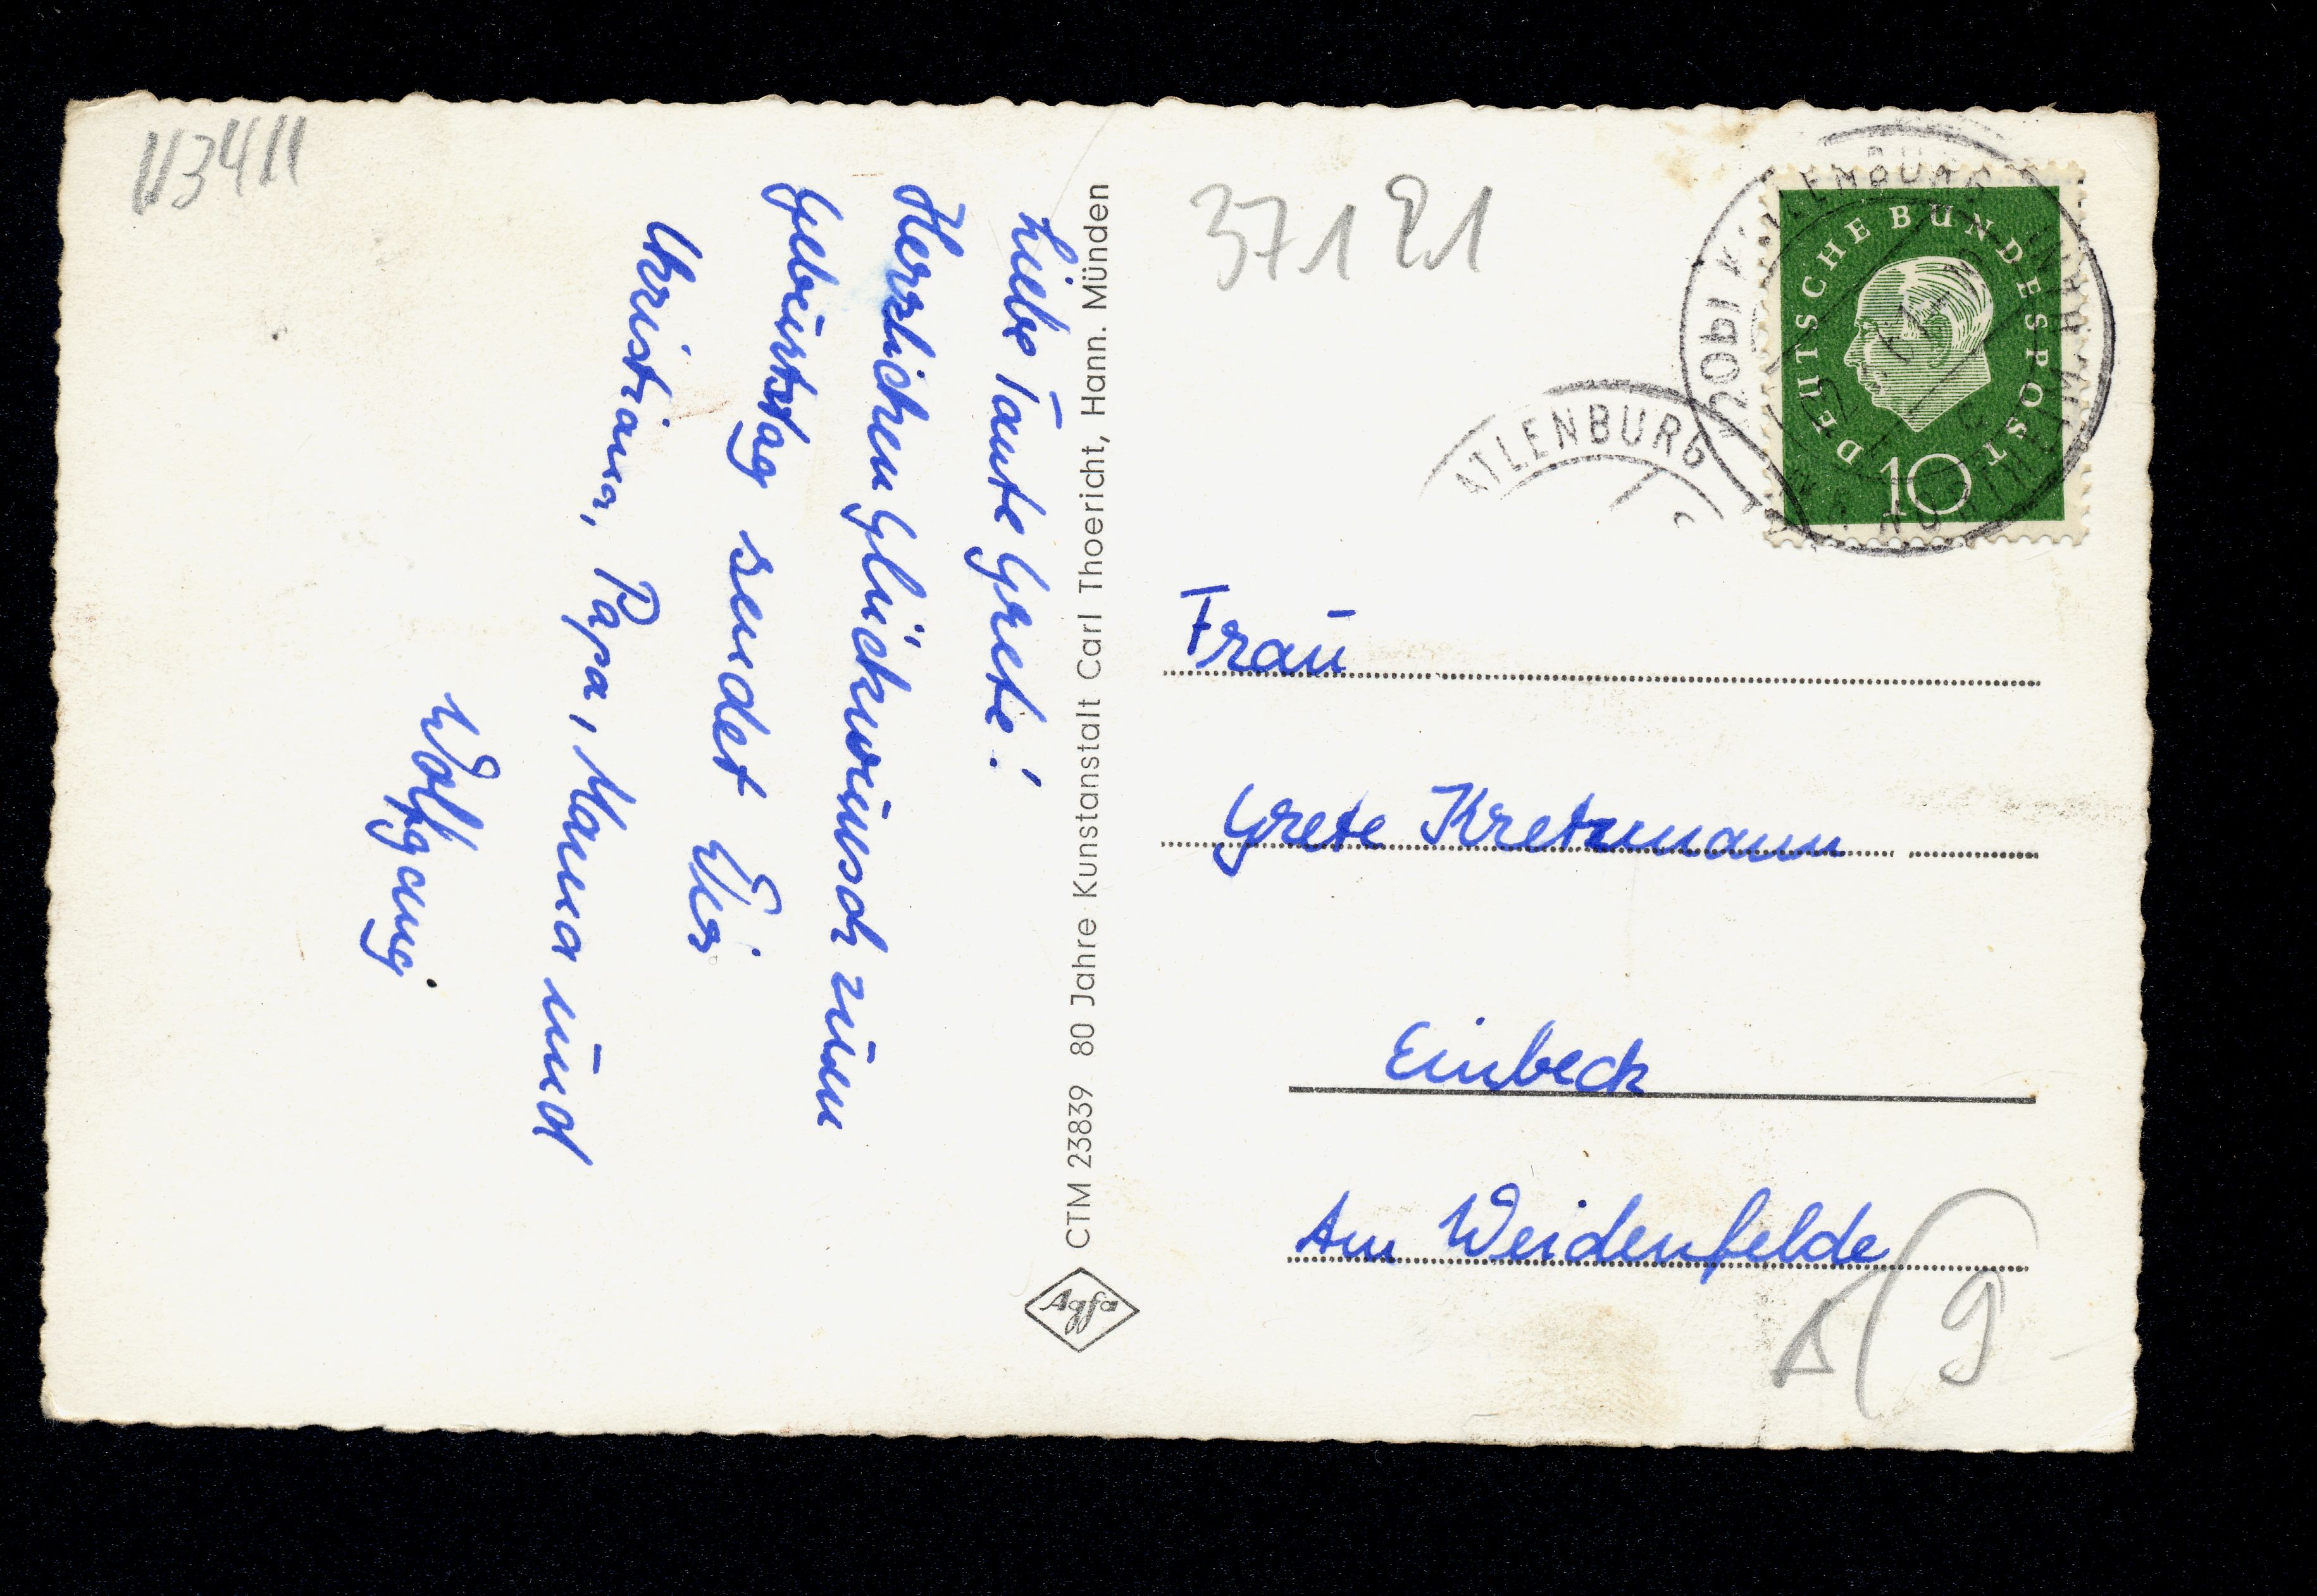 113411
Liebe Tante Grete!
Herzlichen Glückwunsch zum
Geburtstag sendet Dir
Christiana, Papa, Mama und
Wolfgang.
CTM 23839 80 Jahre Kunstanstalt Carl Thoericht, Hann. Münden
Agfa
371 21
ATLENBURG
DEUTSCHE BUNDESPOST
10
Frau
Grete Kretzmann
Einbeck
Am Weidenfelde
9